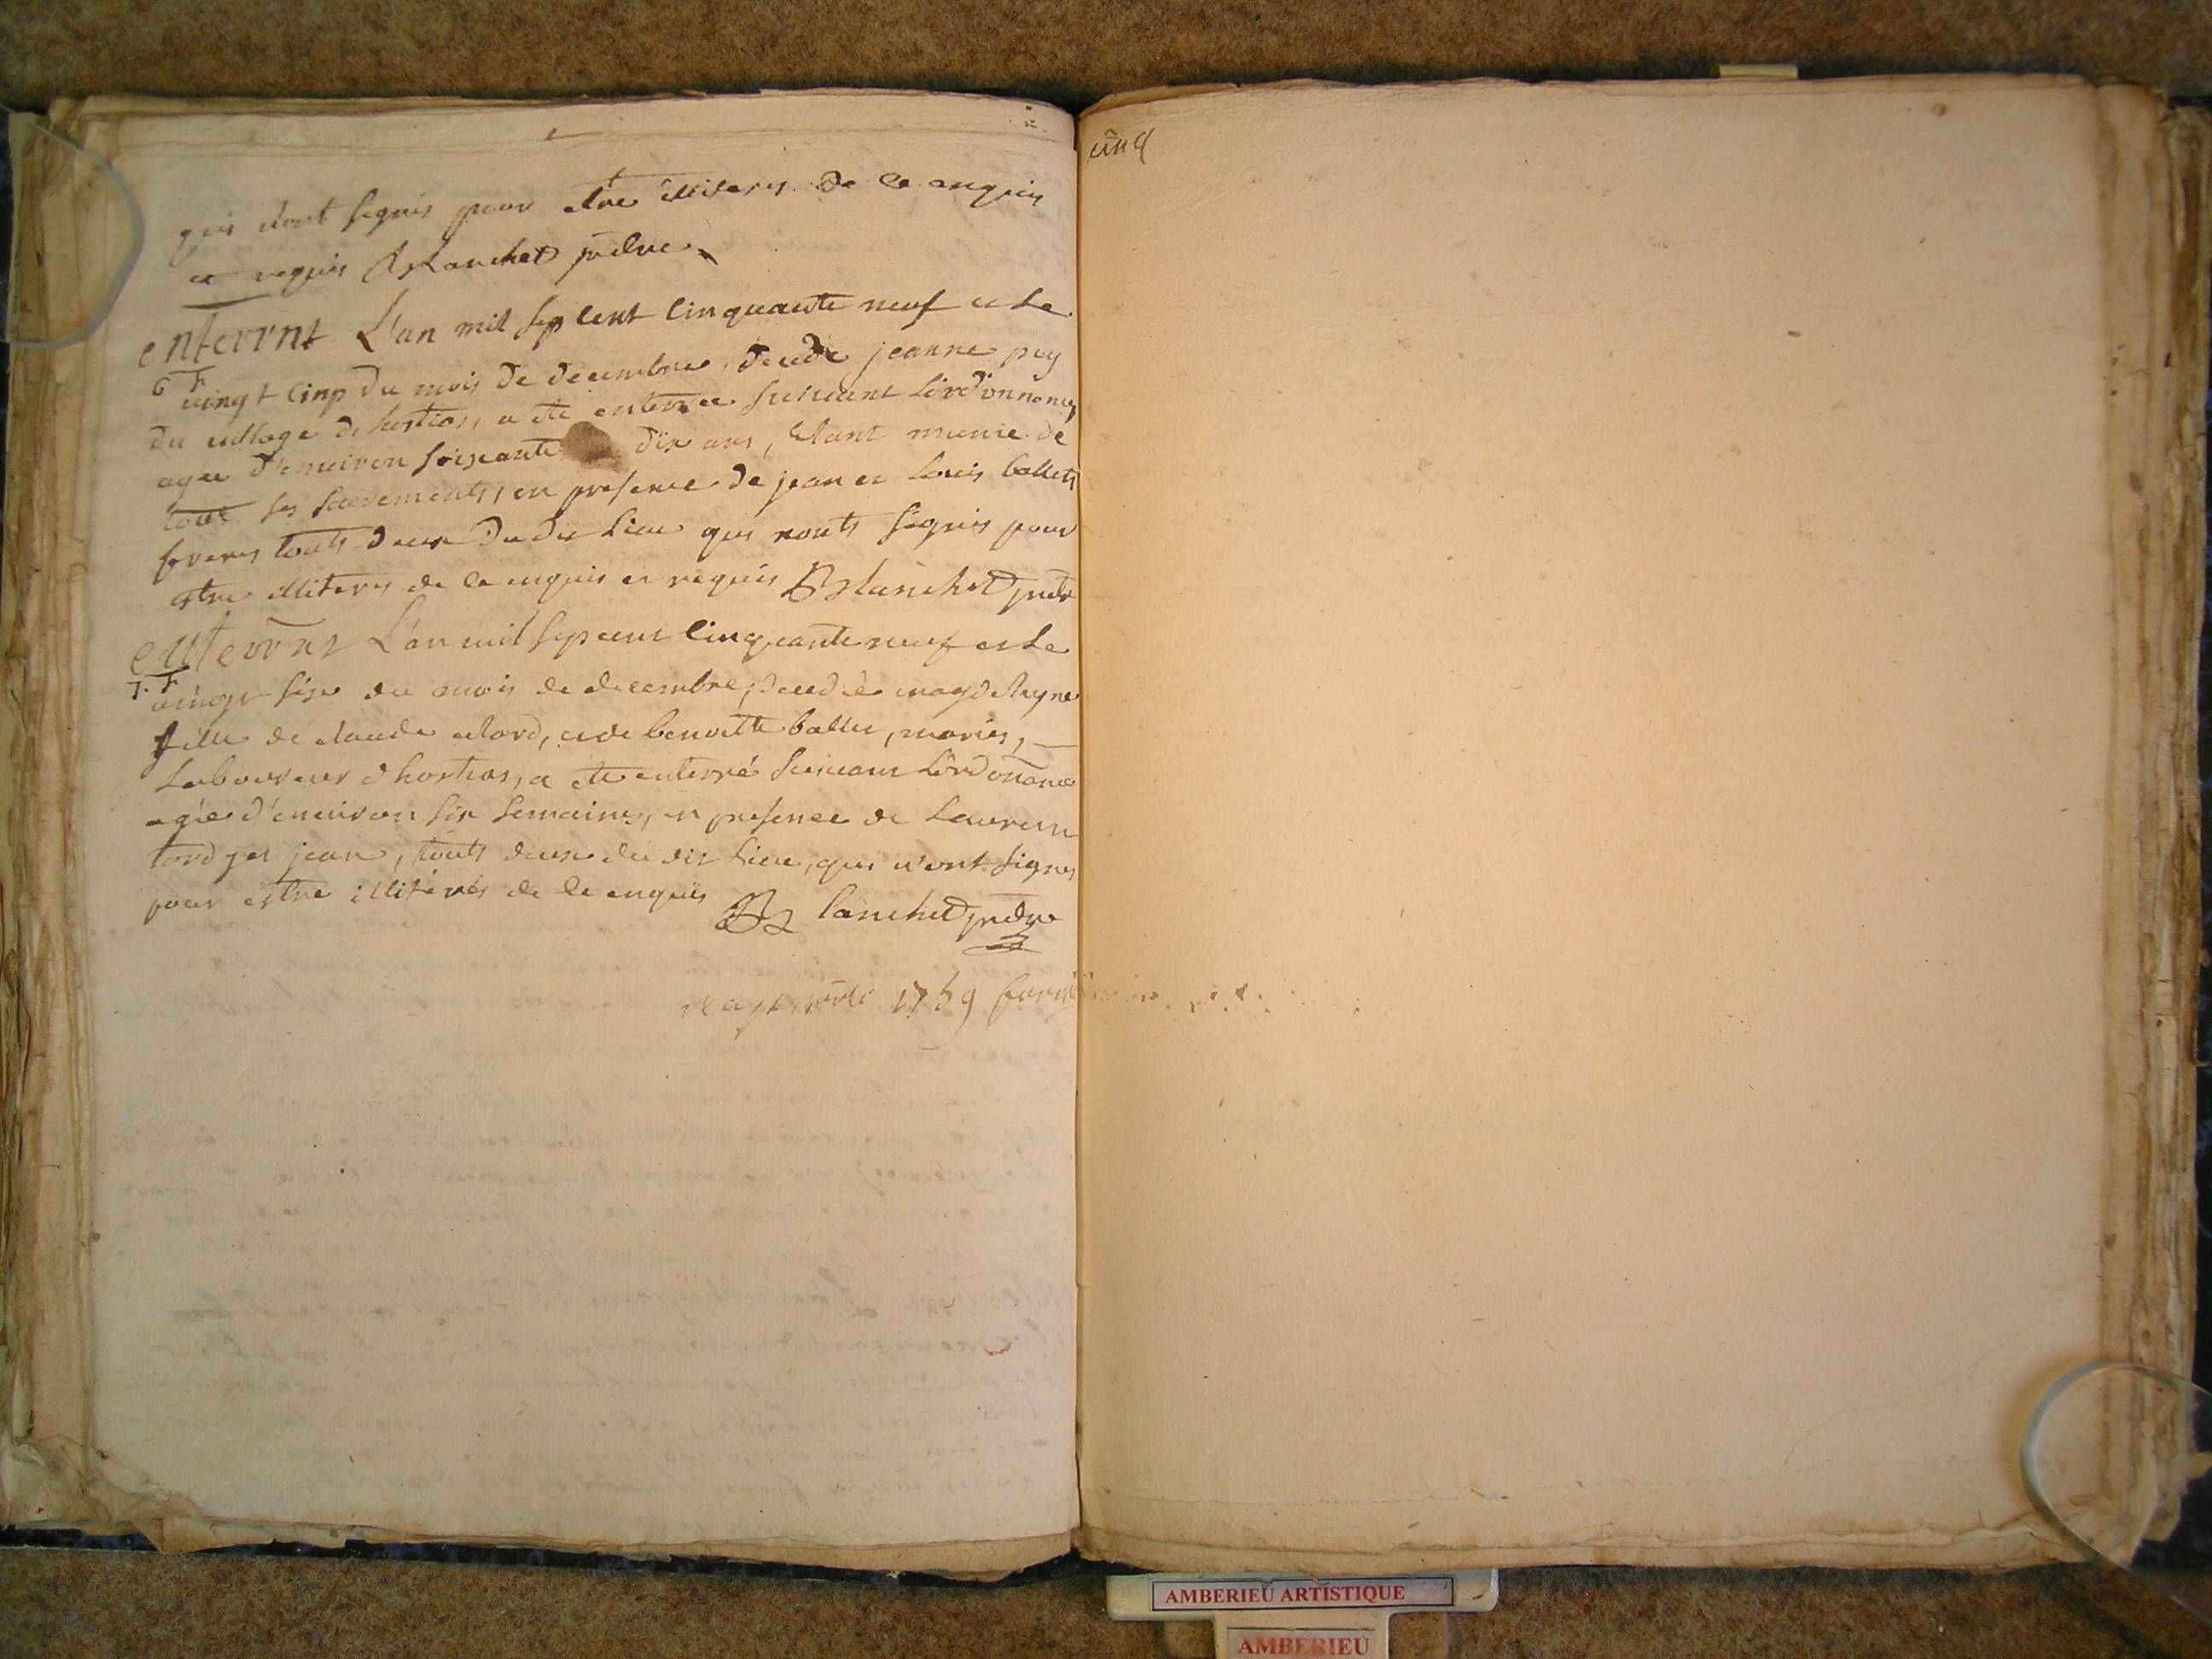 qui n'ont signés pour etre illiteres de ce enquis
et requis Blanchet pretre
enterrnt L'an mil sept cent cinquante neuf et le
6 F vingt cinq du mois de decembre, decede jeanne puy
du village d'hostias, a ete enterree suivant L'ordonnance,
agee d'environ soixante dix ans, etant munie de
tout ses sacrements, en presence de jean et Louis ballets
freres touts deux du dit Lieu qui n'onts signés pour
estre illiteres de ce enquis et requis Blanchet pretre
enterrnt L'an mil sept cent cinquante neuf et le
7. F vingt six du mois de decembre, decedée magdeleyne
fille de claude Lord, et de benoitte ballet, mariés,
Laboureur d'hostias, a ete enterré suivant L'ordonance
agée d'environ six semaines, en presence de Laurent
Lord jean, touts deux du dit Lieu, qui n'ont signés
pour estre illiterés de ce enquis Blanchet pretre
1759
cinq
AMBERIEU ARTISTIQUE
AMBERIEU